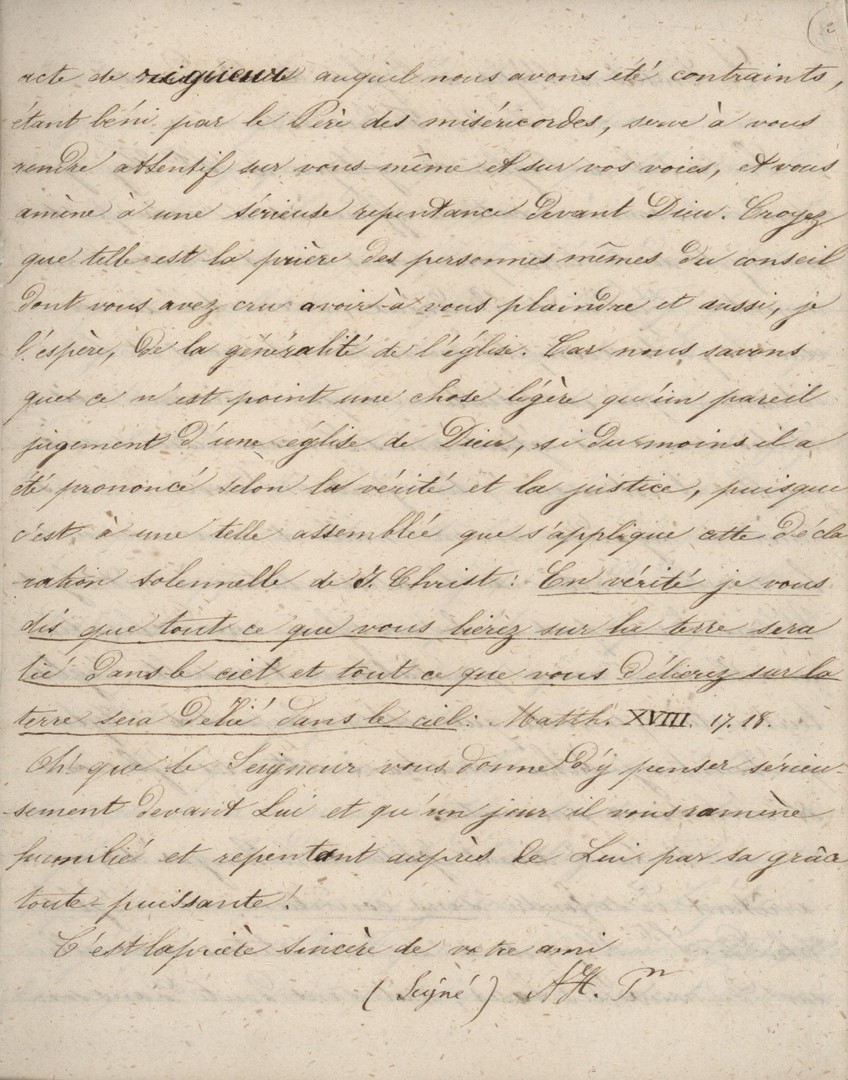 acte de rigueur auquel nous avons été contraints,
étant béni par le Père des miséricordes, serve à vous
rendre attentif sur vous-même et sur vos voies, et vous
amène à une sérieuse repentance devant Dieu. Croyez
que telle est la prière des personnes mêmes du conseil
dont vous avez cru avoir à vous plaindre et aussi, je
l'espère, de la généralité de l'église. Car nous savons
que ce n'est point une chose légère qu'un pareil
jugement d'une église de Dieu, si du moins il a
été prononcé selon la vérité et la justice, puisque
c'est à une telle assemblée que s'applique cette décla
ration solennelle de J. Christ: En vérité je vous
dis que tout ce que vous lierez sur la terre sera
lié dans le ciel et tout ce que vous délierez sur la
terre sera délié dans le ciel: Matth. XVIII. 17. 18.
Oh! que le Seigneur vous donne d'y penser sérieu-
sement devant Lui et qu'un jour il vous ramène
humilié et repentant auprès de Lui par sa grâc
toute-puissante!
C'est la prière sincère de votre ami
(Signé) A. H. Pn